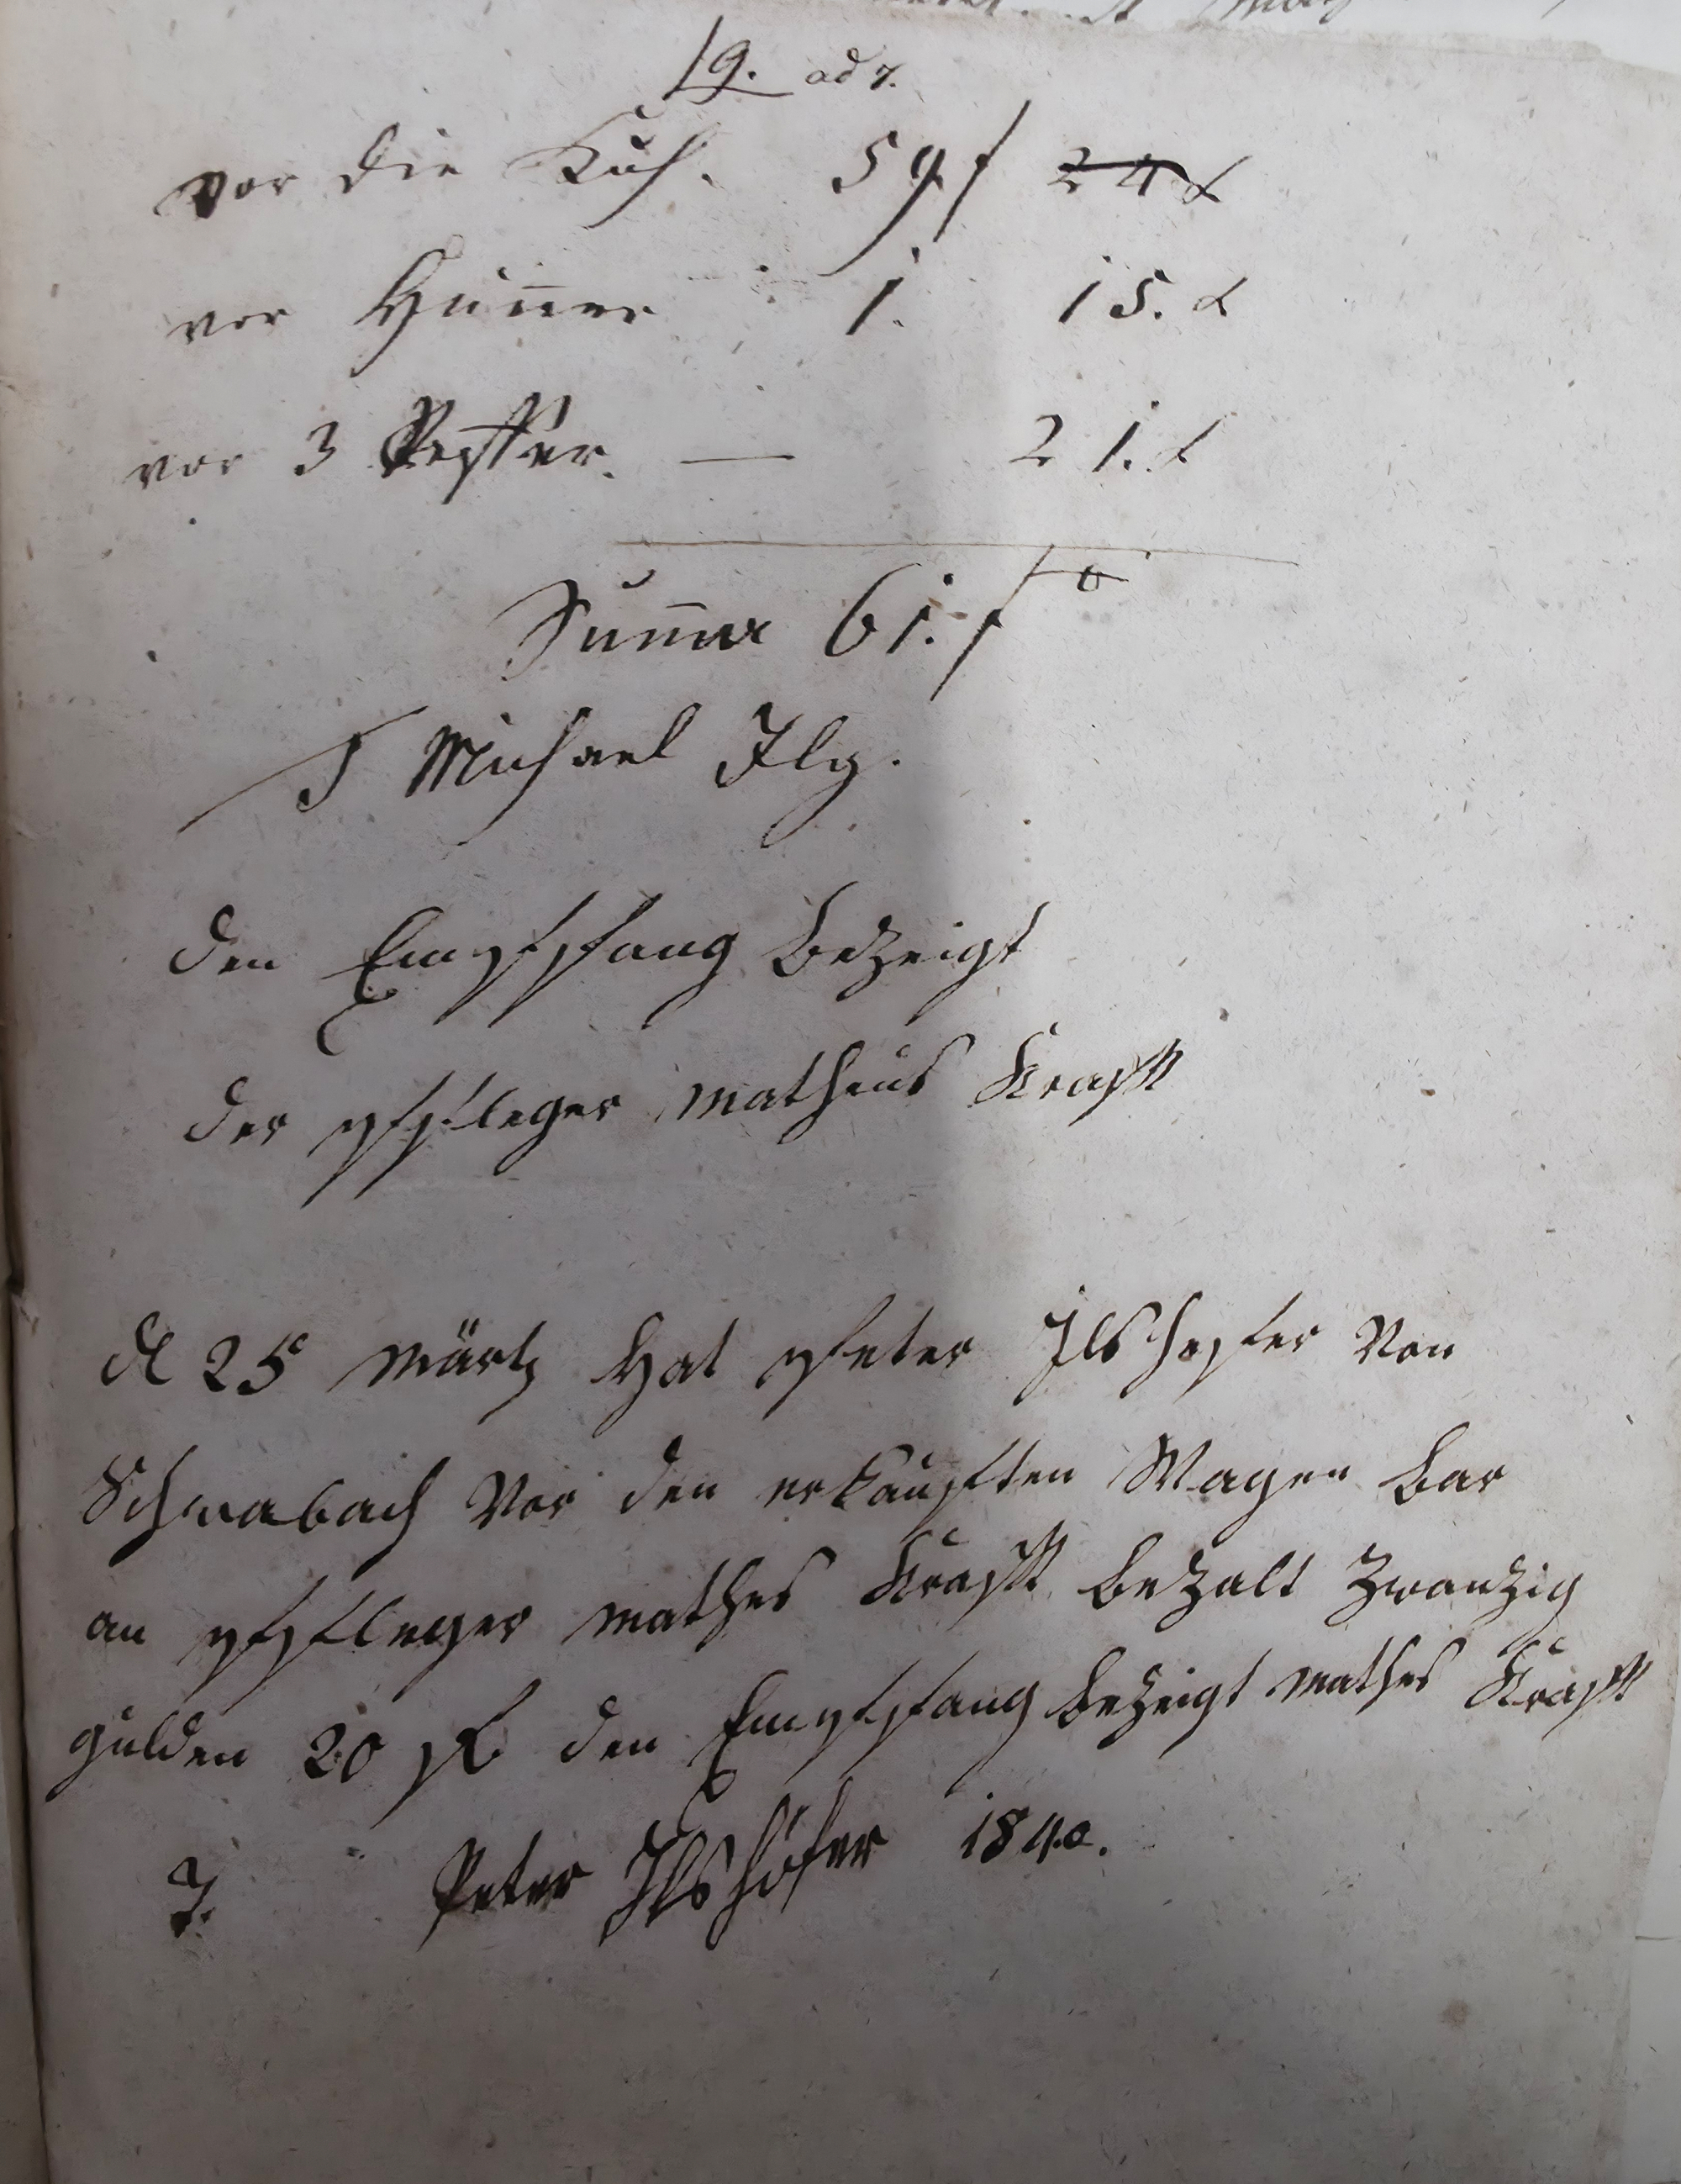 19. ad 7.
vor die Kuh. 59 f 24 x
vor Hünner 1. 15. x
vor 3 — 21. x
Suma 61. f
T Michael Ilg.
den Empfpfang bezeigt
der pfpfleger matheus Krafft
d 25 märtz hat pfeter Ilshepfer von
Schwabach vor den erkaupften Wagen bar
an pfpfleger mathes Krafft bezalt zwanzig
gulden 20 fl den Empfpfang bezeigt mathes Krafft
T. Peter Ilshöfer 1840.